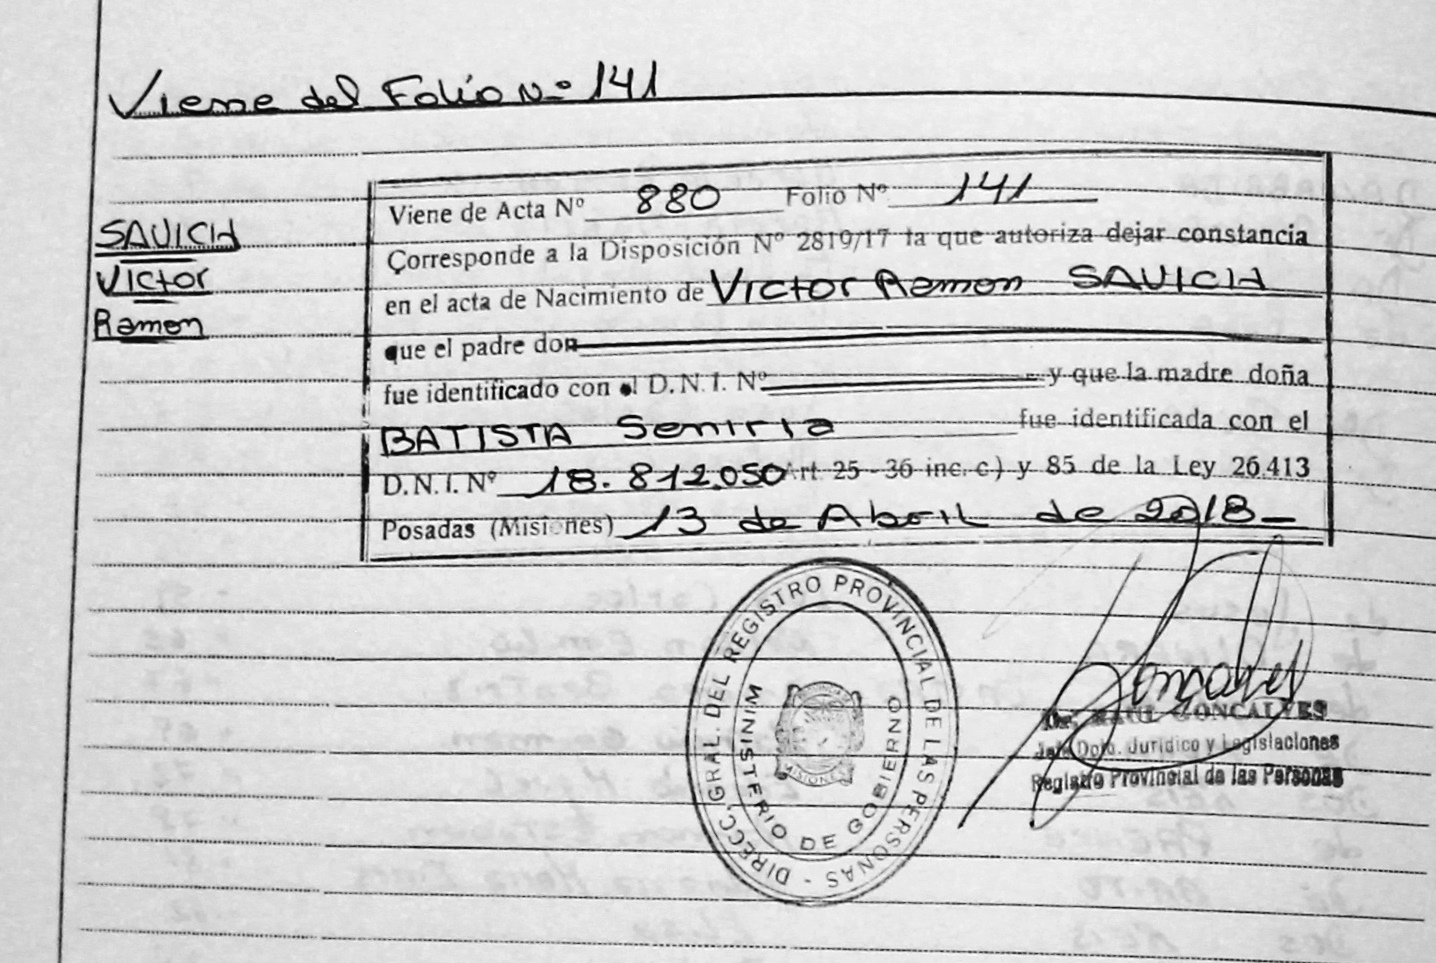 Viene del Folio Nº 141
SAVICH
Victor
Ramon
Viene de Acta Nº 880 Folio Nº 141
Corresponde a la Disposición Nº 2819/17 la que autoriza dejar constancia
en el acta de Nacimiento de Victor Ramon SAVICH
que el padre don
fue identificado con el D.N.I. Nº y que la madre doña
BATISTA Seniria fue identificada con el
D.N.I. Nº 18.812.050 Art. 25 - 36 inc. c) y 85 de la Ley 26.413
Posadas (Misiones) 13 de Abril de 2018-
DIRECC. GRAL. DEL REGISTRO PROVINCIAL DE LAS PERSONAS -
MINISTERIO DE GOBIERNO
MISIONES
Goncalves
Dr. RAUL GONCALVES
Jefe Dpto. Jurídico y Legislaciones
Registro Provincial de las Personas